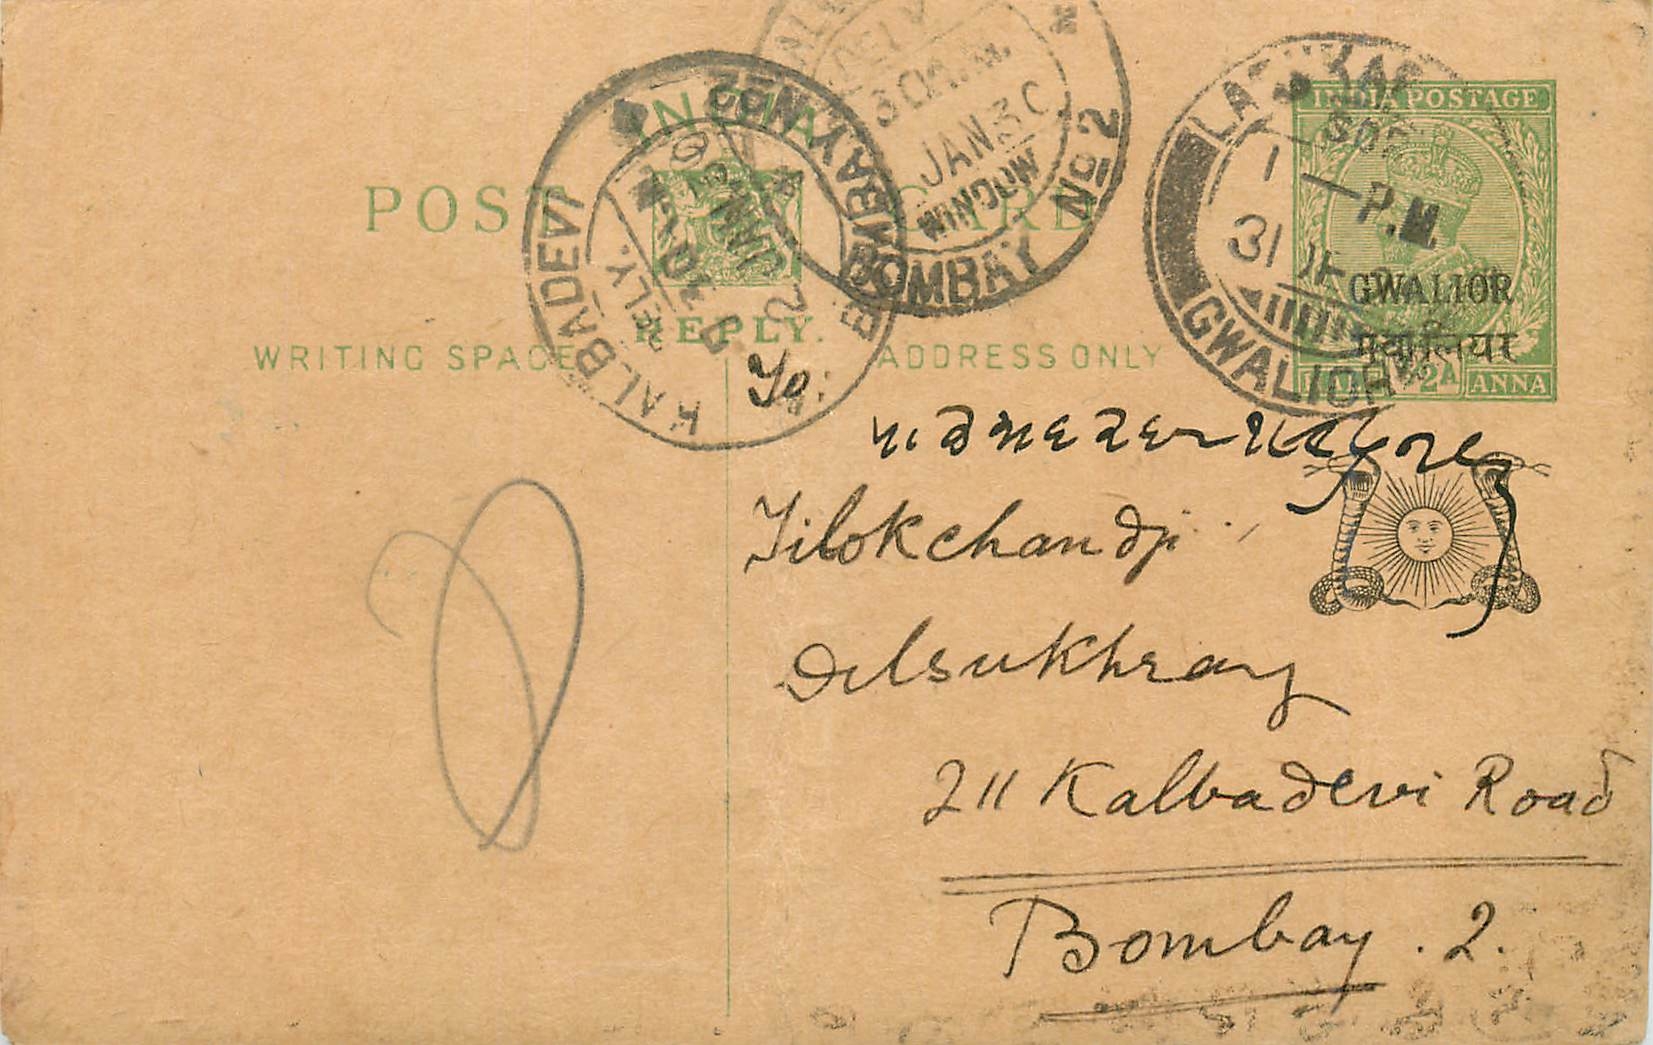 INDIA
POST CARD
REPLY.
WRITING SPACE
ADDRESS ONLY
INDIA POSTAGE
GWALIOR
ग्वालियर
HALF ANNA
LASHKAR
1 P.M
31
GWALIOR
BOMBAY No 2
JAN 30
WINDOW
KALBADEVI
DELY.
BOMBAY No 2
To:
Tilokchandji
Dilsukhray
211 Kalbadevi Road
Bombay . 2.